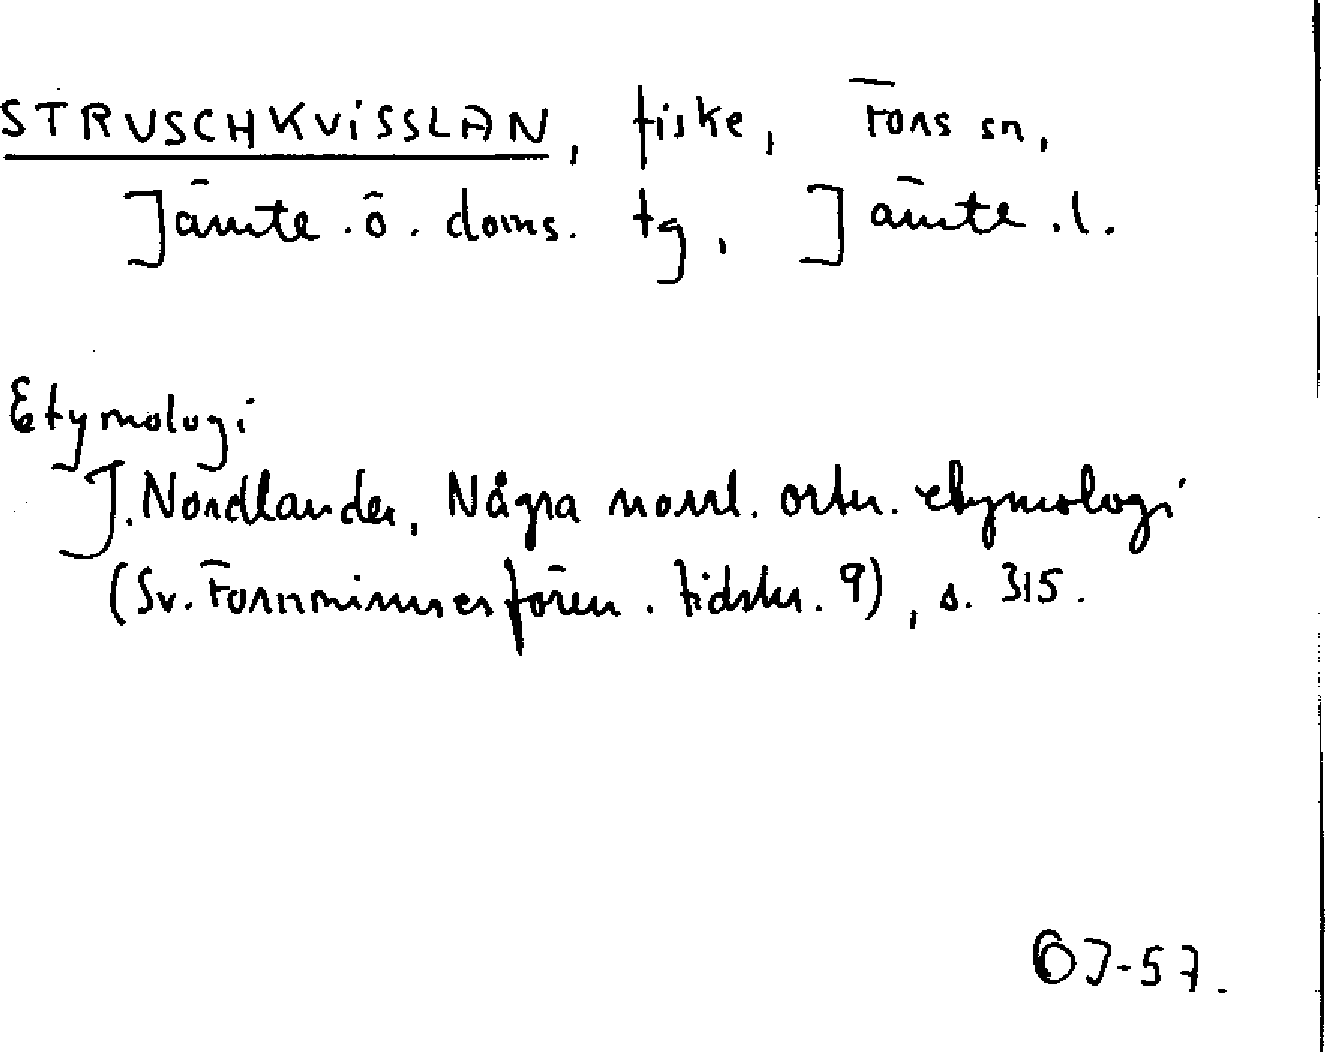 STRUSCHKVISSLAN, fiske, Fors sn,
Jämte.ö. doms. tg, Jämte.l.
Etymologi
J. Nordlander, Några norrl. ortn. etymologi
(Sv. Fornminnesfören. tidskr. 9), s. 315.
ÖJ-57.